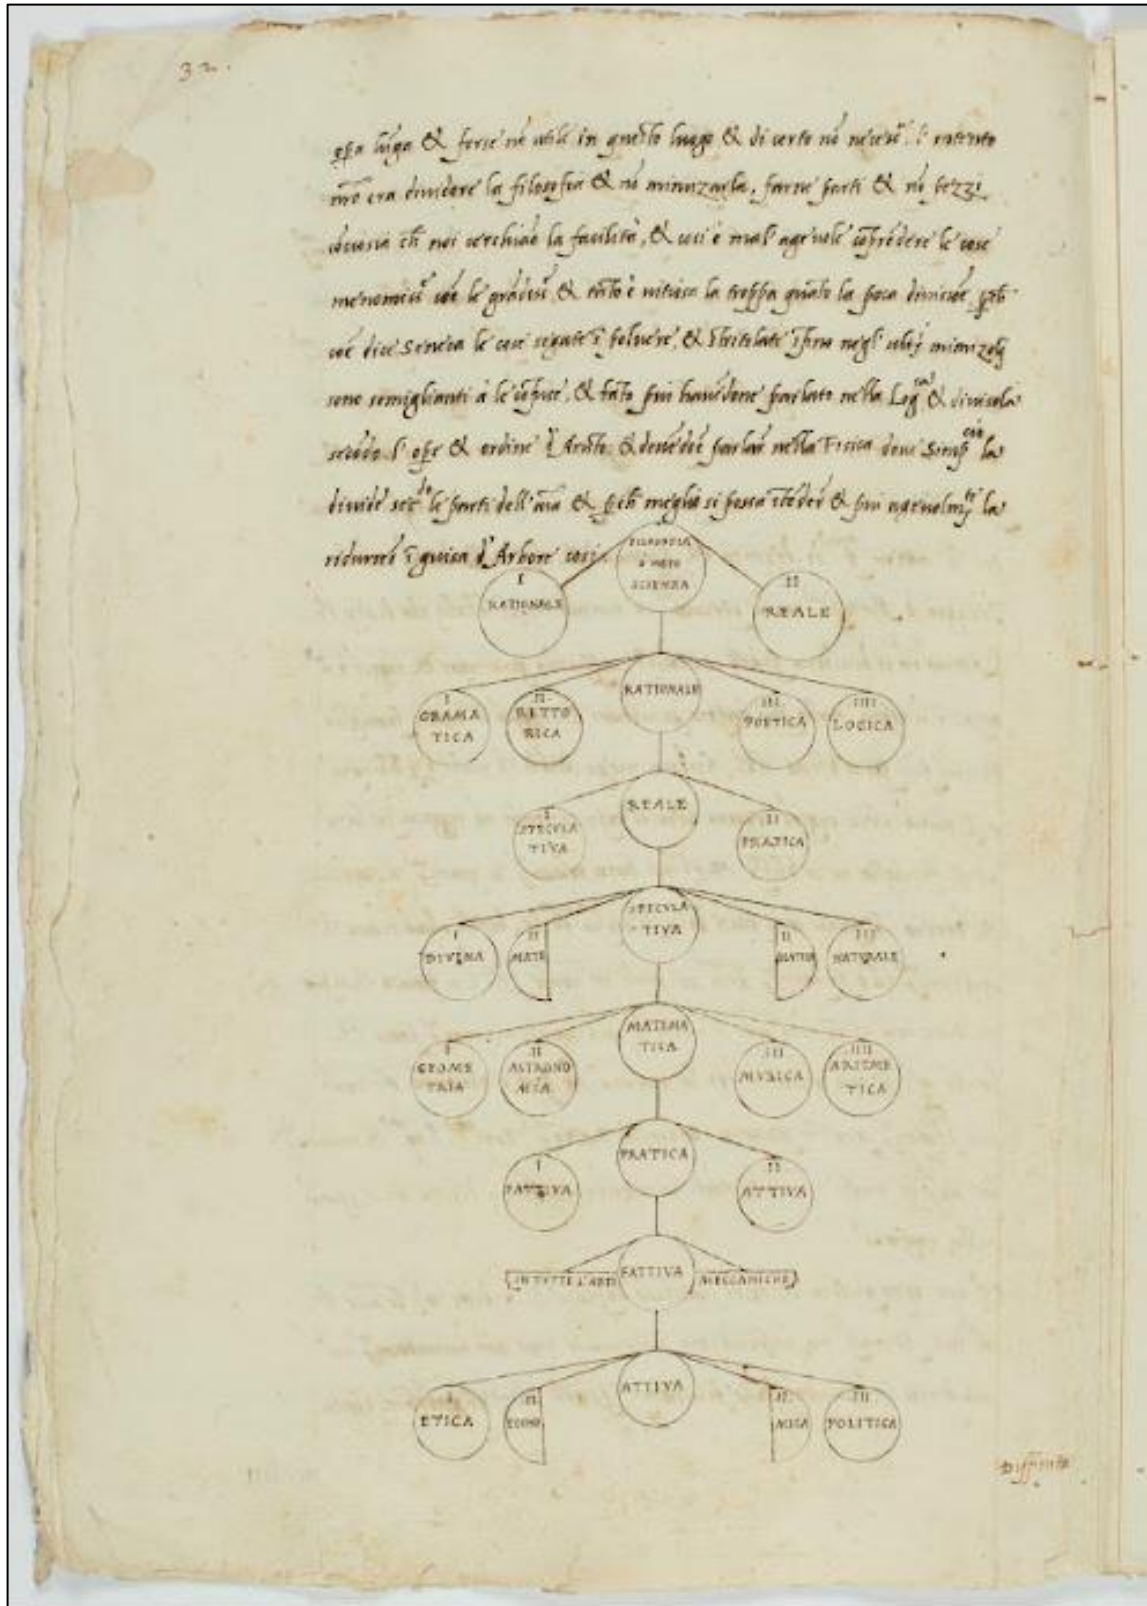 32.
opa lūga & forse nō utile in questo luogo & di certo nō necess.ᵃ l' intento
nrō era dividere la filosofia & nō minuzzarla, farne parti & nō pezzi
cōciosia ch̄ noi cerchiāo la facilità, & così è mal' agevole cōprēdere le cose
menomiss.ᵉ cōe le grādiss.ᵉ & tāto è vitiosa la troppa quāto la poca divisiōe, pch̄
cōe dice Seneca le cose segate ī polvere, & stritolate īfino negl' ultⁱ minuzzoli
sono somiglianti à le cōfuse, & tāto più havēdone parlato nella Logᶜᵃ & divisola
secōdo l' ope & ordine d' Aristo. & devēdoē parlare nella Fisica dove Simpᶜⁱᵒ la
divide secᵈᵒ le parti dell' aīa & pch̄ meglio si possa ītēder & più agevolmᵗᵉ la
riduremo ī guisa d' Arbore così
FILOSOFIA
O VERO
SCIENZA
I
RATIONALE
II
REALE
RATIONALE
I
GRAMA
TICA
II
RETTO
RICA
III
POETICA
IIII
LOGICA
REALE
I
SPECULA
TIVA
II
PRATICA
SPECULA
TIVA
I
DIVINA
II
MATE
II
MATICA
III
NATURALE
MATEMA
TICA
I
GEOME
TRIA
II
ASTRONO
MIA
III
MUSICA
IIII
ARITME
TICA
PRATICA
I
FATTIVA
II
ATTIVA
FATTIVA
IN TUTTE L'ARTI
MECCANICHE
ATTIVA
I
ETICA
II
ECONO
II
MICA
III
POLITICA